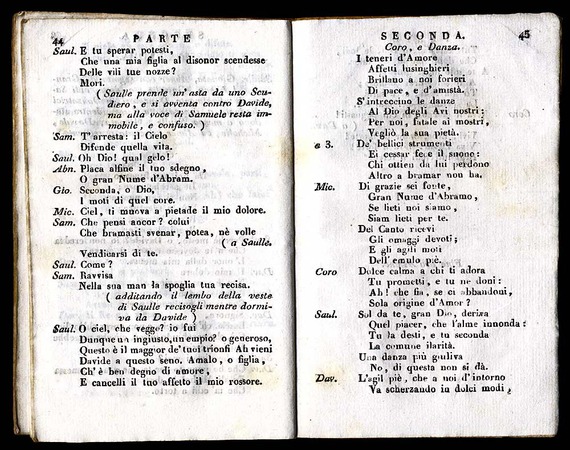 44 PARTE
Saul. E tu sperar potesti,
Che una mia figlia al disonor scendesse
Delle vili tue nozze?
Mori.
( Saulle prende un'asta da uno Scu-
diero, e si avventa contro Davide,
ma alla voce di Samuele resta im-
mobile, e confuso. )
Sam. T'arresta: il Cielo
Difende quella vita.
Saul. Oh Dio! qual gelo!
Abn. Placa alfine il tuo sdegno,
O gran Nume d'Abram.
Gio. Seconda, o Dio,
I moti di quel core.
Mic. Ciel, ti muova a pietade il mio dolore.
Sam. Che pensi ancor? colui
Che bramasti svenar, potea, nè volle
( a Saulle.
Vendicarsi di te.
Saul. Come?
Sam. Ravvisa
Nella sua man la spoglia tua recisa.
( additando il lembo della veste
di Saulle recisogli mentre dormi-
va da Davide )
Saul. O ciel, che veggo? io fui
Dunque un ingiusto, un empio? o generoso,
Questo è il maggior de' tuoi trionfi Ah vieni
Davide a questo seno. Amalo, o figlia,
Ch'è ben degno di amore,
E cancelli il tuo affetto il mio rossore.
SECONDA. 45
Coro, e Danza.
I teneri d'Amore
Affetti lusinghieri
Brillano a noi forieri
Di pace, e d'amistà.
S'intreccino le danze
Al Dio degli Avi nostri:
Per noi, fatale ai mostri,
Vegliò la sua pietà.
a 3. De' bellici strumenti
Ei cessar fece il suono:
Chi ottien da lui perdono
Altro a bramar non ha.
Mic. Di grazie sei fonte,
Gran Nume d'Abramo,
Se lieti noi siamo,
Siam lieti per te.
Del Canto ricevi
Gli omaggi devoti;
E gli agili moti
Dell'emulo piè.
Coro Dolce calma a chi ti adora
Tu prometti, e tu ne doni:
Ah! che fia, se ci abbandoni,
Sola origine d'Amor?
Saul. Sol da te, gran Dio, deriza
Quel piacer, che l'alme innonda:
Tu la desti, e tu seconda
La comune ilarità.
Una danza più giuliva
No, di questa non si dà.
Dav. L'agil piè, che a noi d'intorno
Va scherzando in dolci modi,